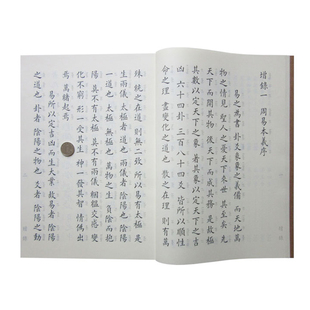 增錄一 周易本義序
易之為書卦爻彖象之義備而天地萬
物之情見聖人之憂天下來世其至矣先
天下而開其物後天下而成其務是故極
其數以定天下之象著其象以定天下之吉
凶六十四卦三百八十四爻皆所以順性
命之理盡變化之道也散之在理則有萬
殊統之在道則無二致所以易有太極是
生兩儀太極者道也兩儀者陰陽也陰
陽一道也太極無極也萬物之生負陰而抱
陽莫不有太極莫不有兩儀絪縕交感變
化不窮形一受其生神一發其智情偽出
焉萬緒起焉
易所以定吉凶而生大業故易者陰陽
之道也卦者陰陽之物也爻者陰陽之動